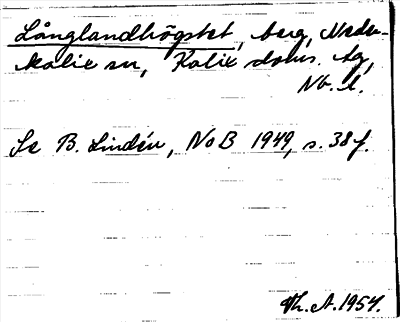 Långlandhögstet, berg, Neder-
kalix sn, Kalix doms. tg,
Nb. l.
Se B. Lindén, NoB 1949, s. 38 f.
Th. A. 1954.